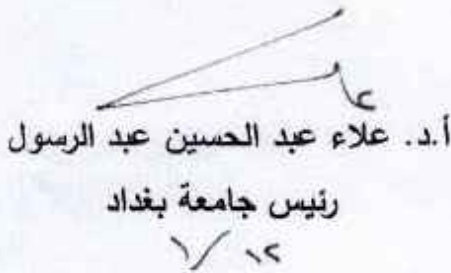 أ.د. علاء عبد الحسين عبد الرسول
رئيس جامعة بغداد
١٢ / ١